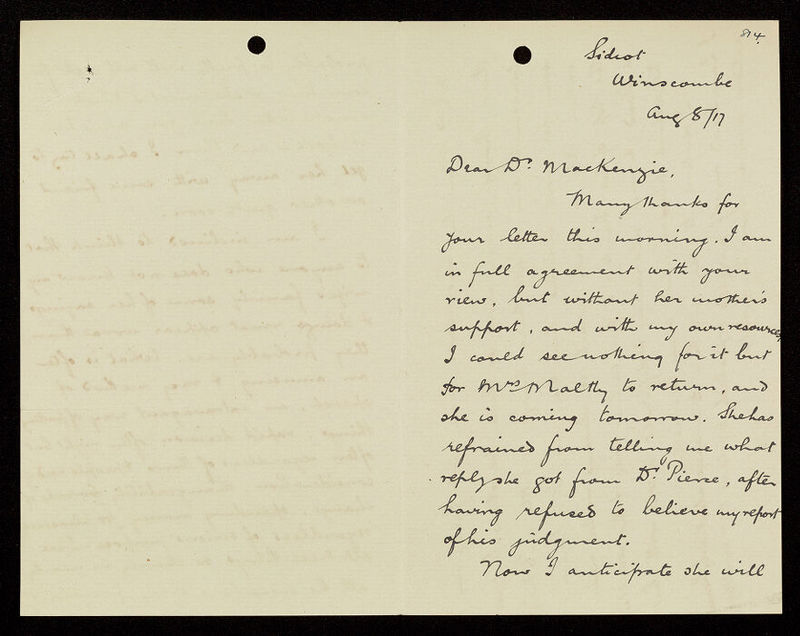 814
Sidcot
Winscombe
Aug 8/17
Dear Dr. MacKenzie,
Many thanks for
your letter this morning. I am
in full agreement with your
view, but without her mother's
support, and with my own resources
I could see nothing for it but
for Mrs Maltby to return, and
she is coming tomorrow. She has
refrained from telling me what
reply she got from Dr. Pierce, after
having refused to believe my report
of his judgment.
Now I anticipate she will